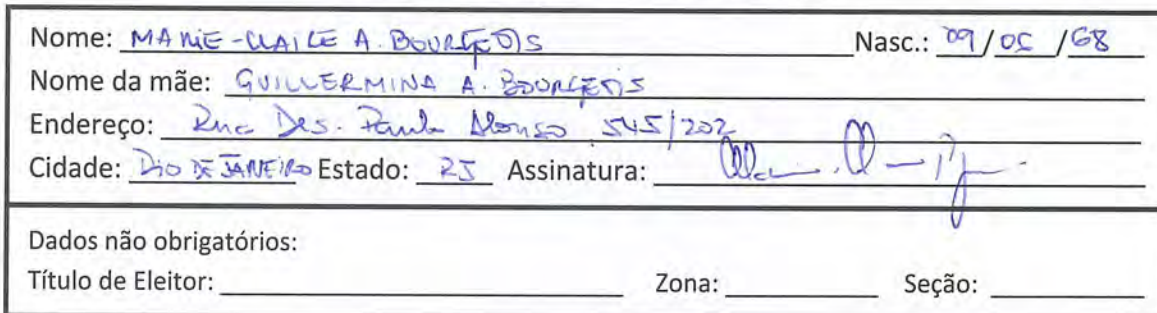 Nome: MARIE-CLAIRE A. BOURGEOIS Nasc.: 09/05/68
Nome da mãe: GUILLERMINA A. BOURGEOIS
Endereço: Rua Des. Paulo Alonso 545/202
Cidade: RIO DE JANEIRO Estado: RJ Assinatura:
Dados não obrigatórios:
Título de Eleitor: Zona: Seção: